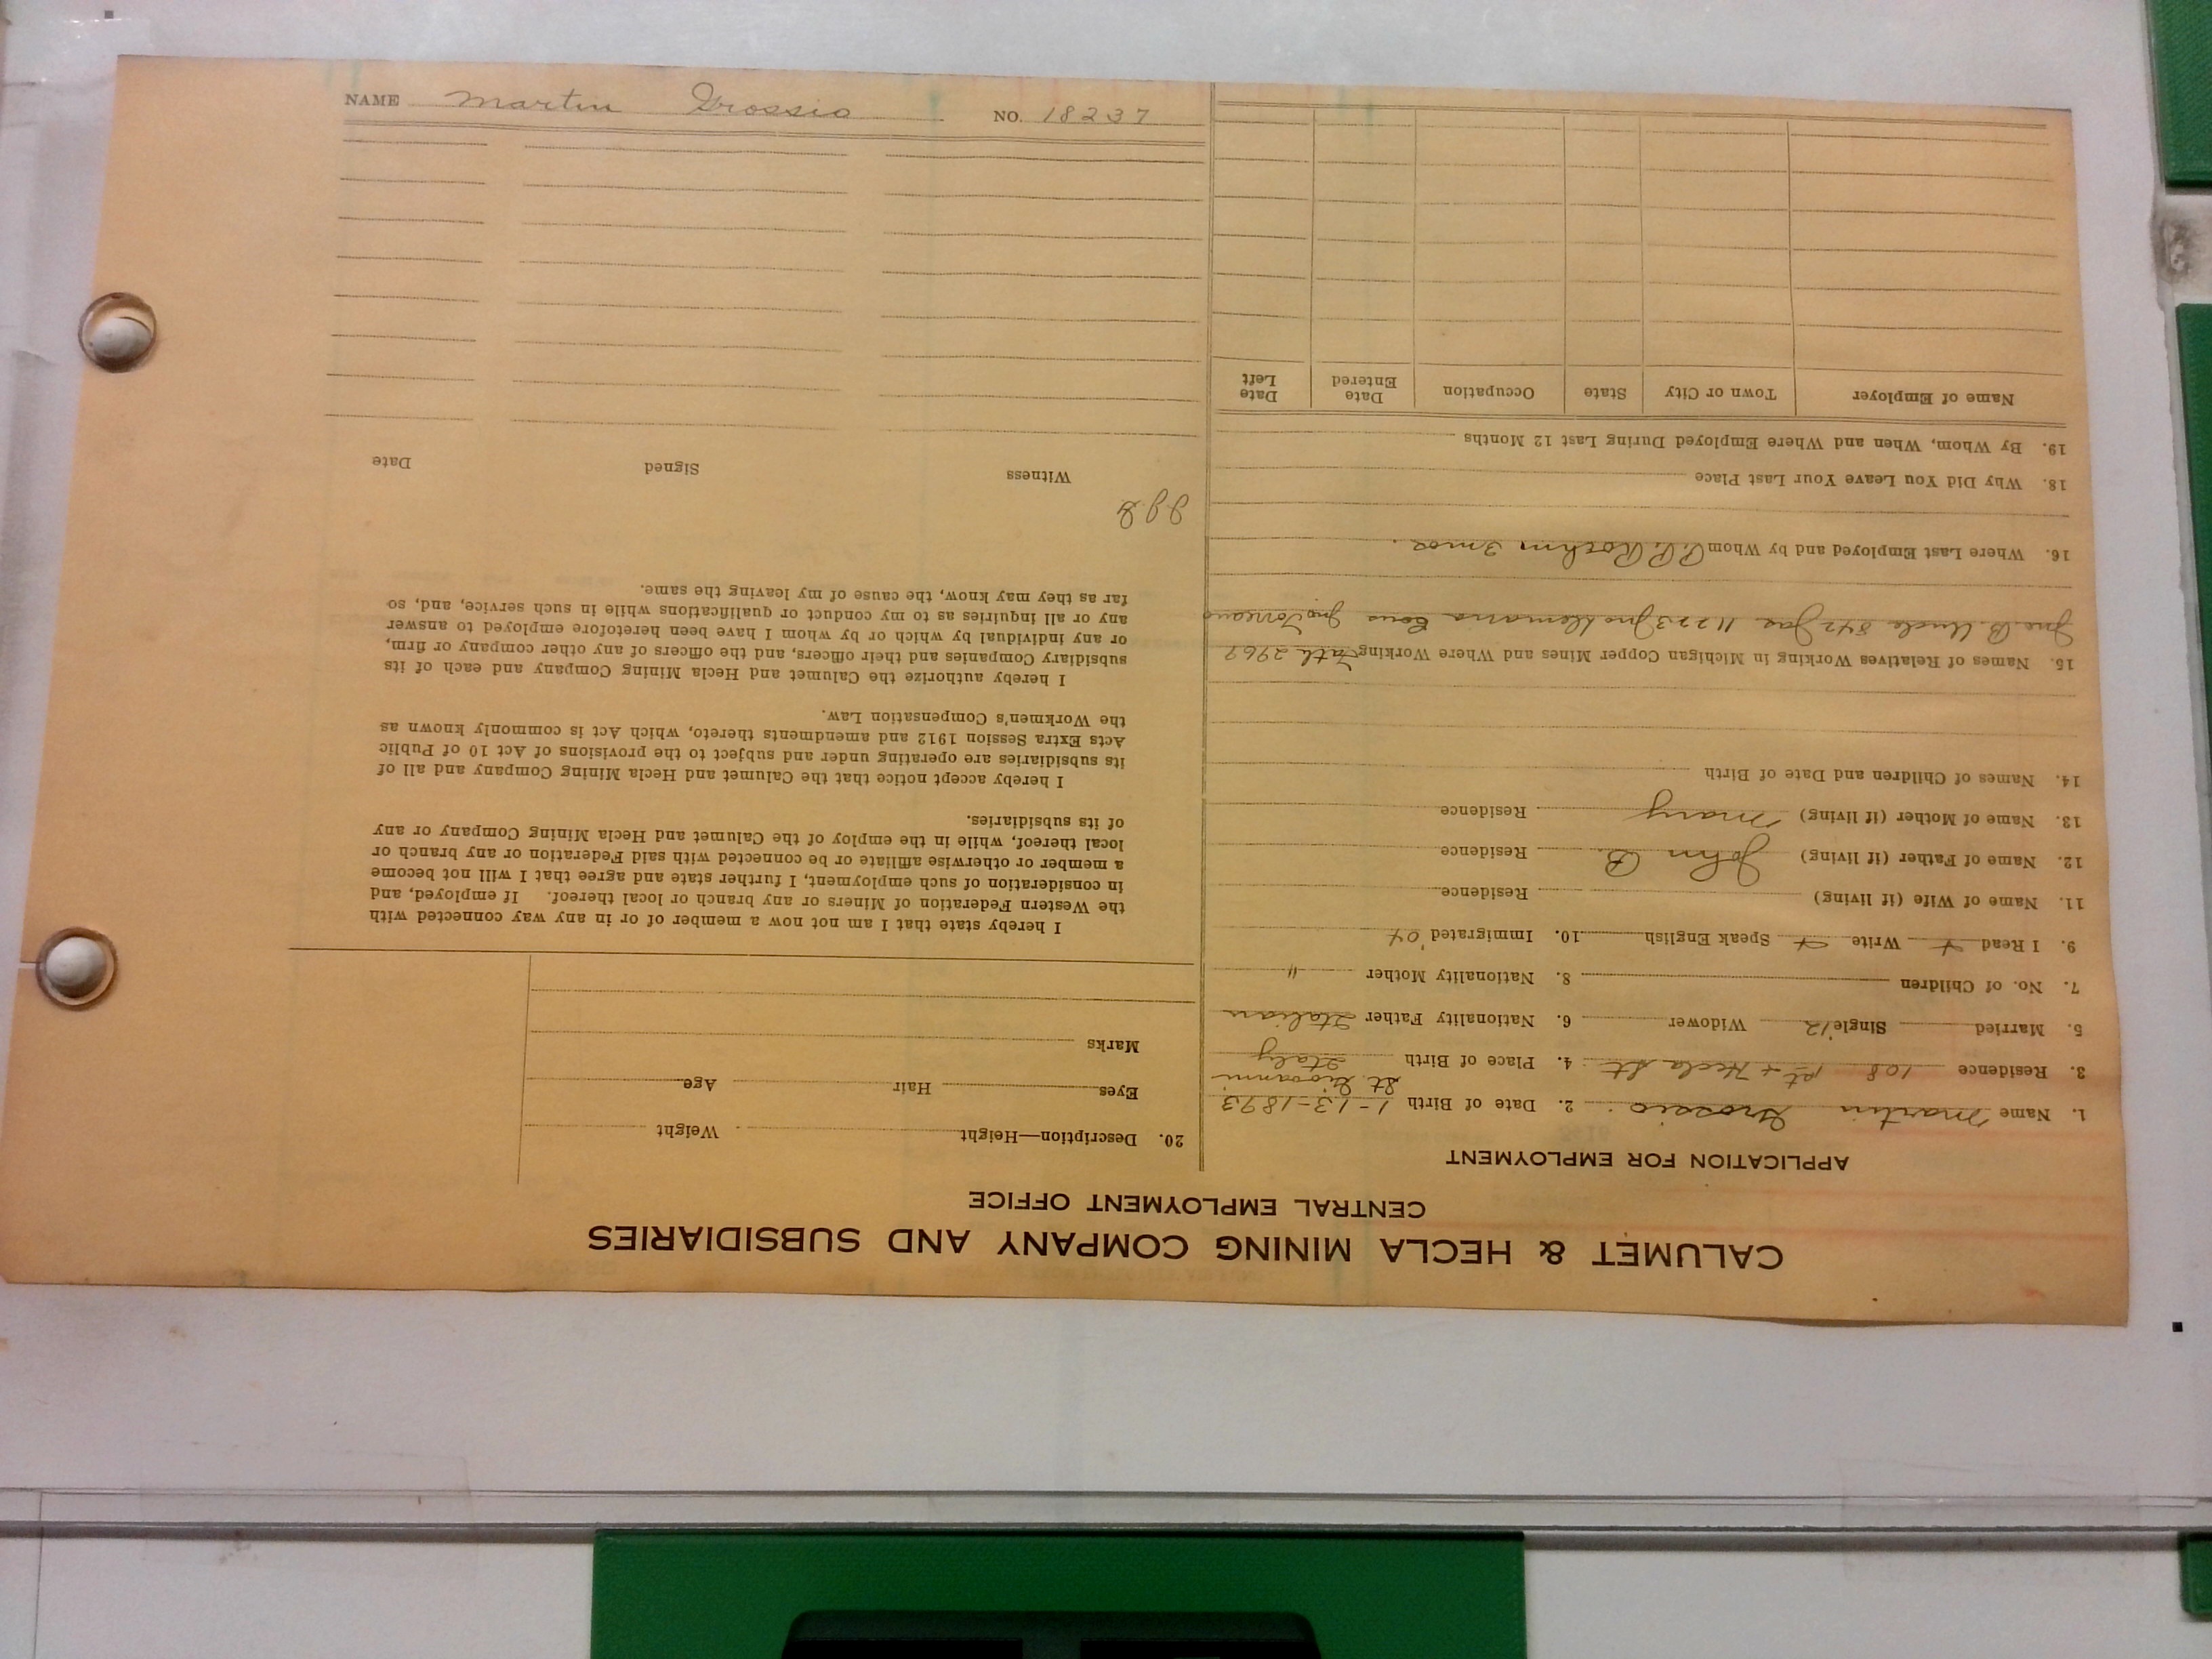 CALUMET & HECLA MINING COMPANY AND SUBSIDIARIES
CENTRAL EMPLOYMENT OFFICE
APPLICATION FOR EMPLOYMENT
1. Name Martin Grossio 2. Date of Birth 1-13-1893
3. Residence 108 Pt + Hecla St. 4. Place of Birth St. Giovanni Italy
5. Married Single '12 Widower 6. Nationality Father Italian
7. No. of Children 8. Nationality Mother "
9. I Read + Write + Speak English 10. Immigrated '04
11. Name of Wife (if living) Residence
12. Name of Father (if living) John B. Residence
13. Name of Mother (if living) Mary Residence
14. Names of Children and Date of Birth
15. Names of Relatives Working in Michigan Copper Mines and Where Working Fath 2969
Jno. B. Uncle 842 Jas 11223 Jno Cous Jno
16. Where Last Employed and by Whom Roehm 3 mos.
18. Why Did You Leave Your Last Place
19. By Whom, When and Where Employed During Last 12 Months
Name of Employer Town or City State Occupation Date Entered Date Left
20. Description—Height Weight
Eyes Hair Age
Marks
I hereby state that I am not now a member of or in any way connected with
the Western Federation of Miners or any branch or local thereof. If employed, and
in consideration of such employment, I further state and agree that I will not become
a member or otherwise affiliate or be connected with said Federation or any branch or
local thereof, while in the employ of the Calumet and Hecla Mining Company or any
of its subsidiaries.
I hereby accept notice that the Calumet and Hecla Mining Company and all of
its subsidiaries are operating under and subject to the provisions of Act 10 of Public
Acts Extra Session 1912 and amendments thereto, which Act is commonly known as
the Workmen's Compensation Law.
I hereby authorize the Calumet and Hecla Mining Company and each of its
subsidiary Companies and their officers, and the officers of any other company or firm,
or any individual by which or by whom I have been heretofore employed to answer
any or all inquiries as to my conduct or qualifications while in such service, and, so
far as they may know, the cause of my leaving the same.
Witness Signed Date
NAME Martin Grossio NO. 18237